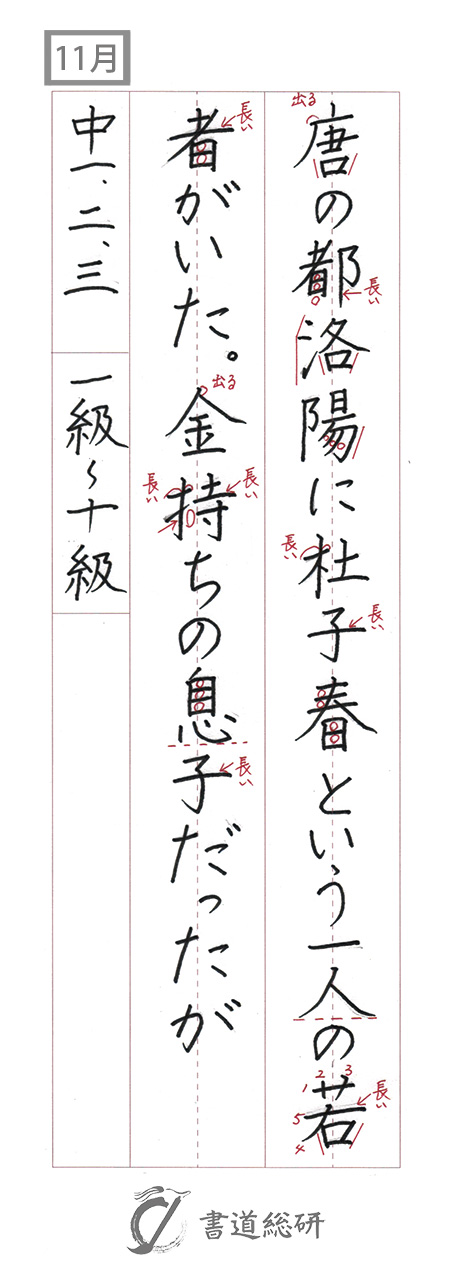 11月
唐の都洛陽に杜子春という一人の若
者がいた。金持ちの息子だったが
中一、二、三
一級〜十級
出る
長い
長い
長い
長い
1 2 3
4
5
長い
出る
長い
長い
長い
書道総研